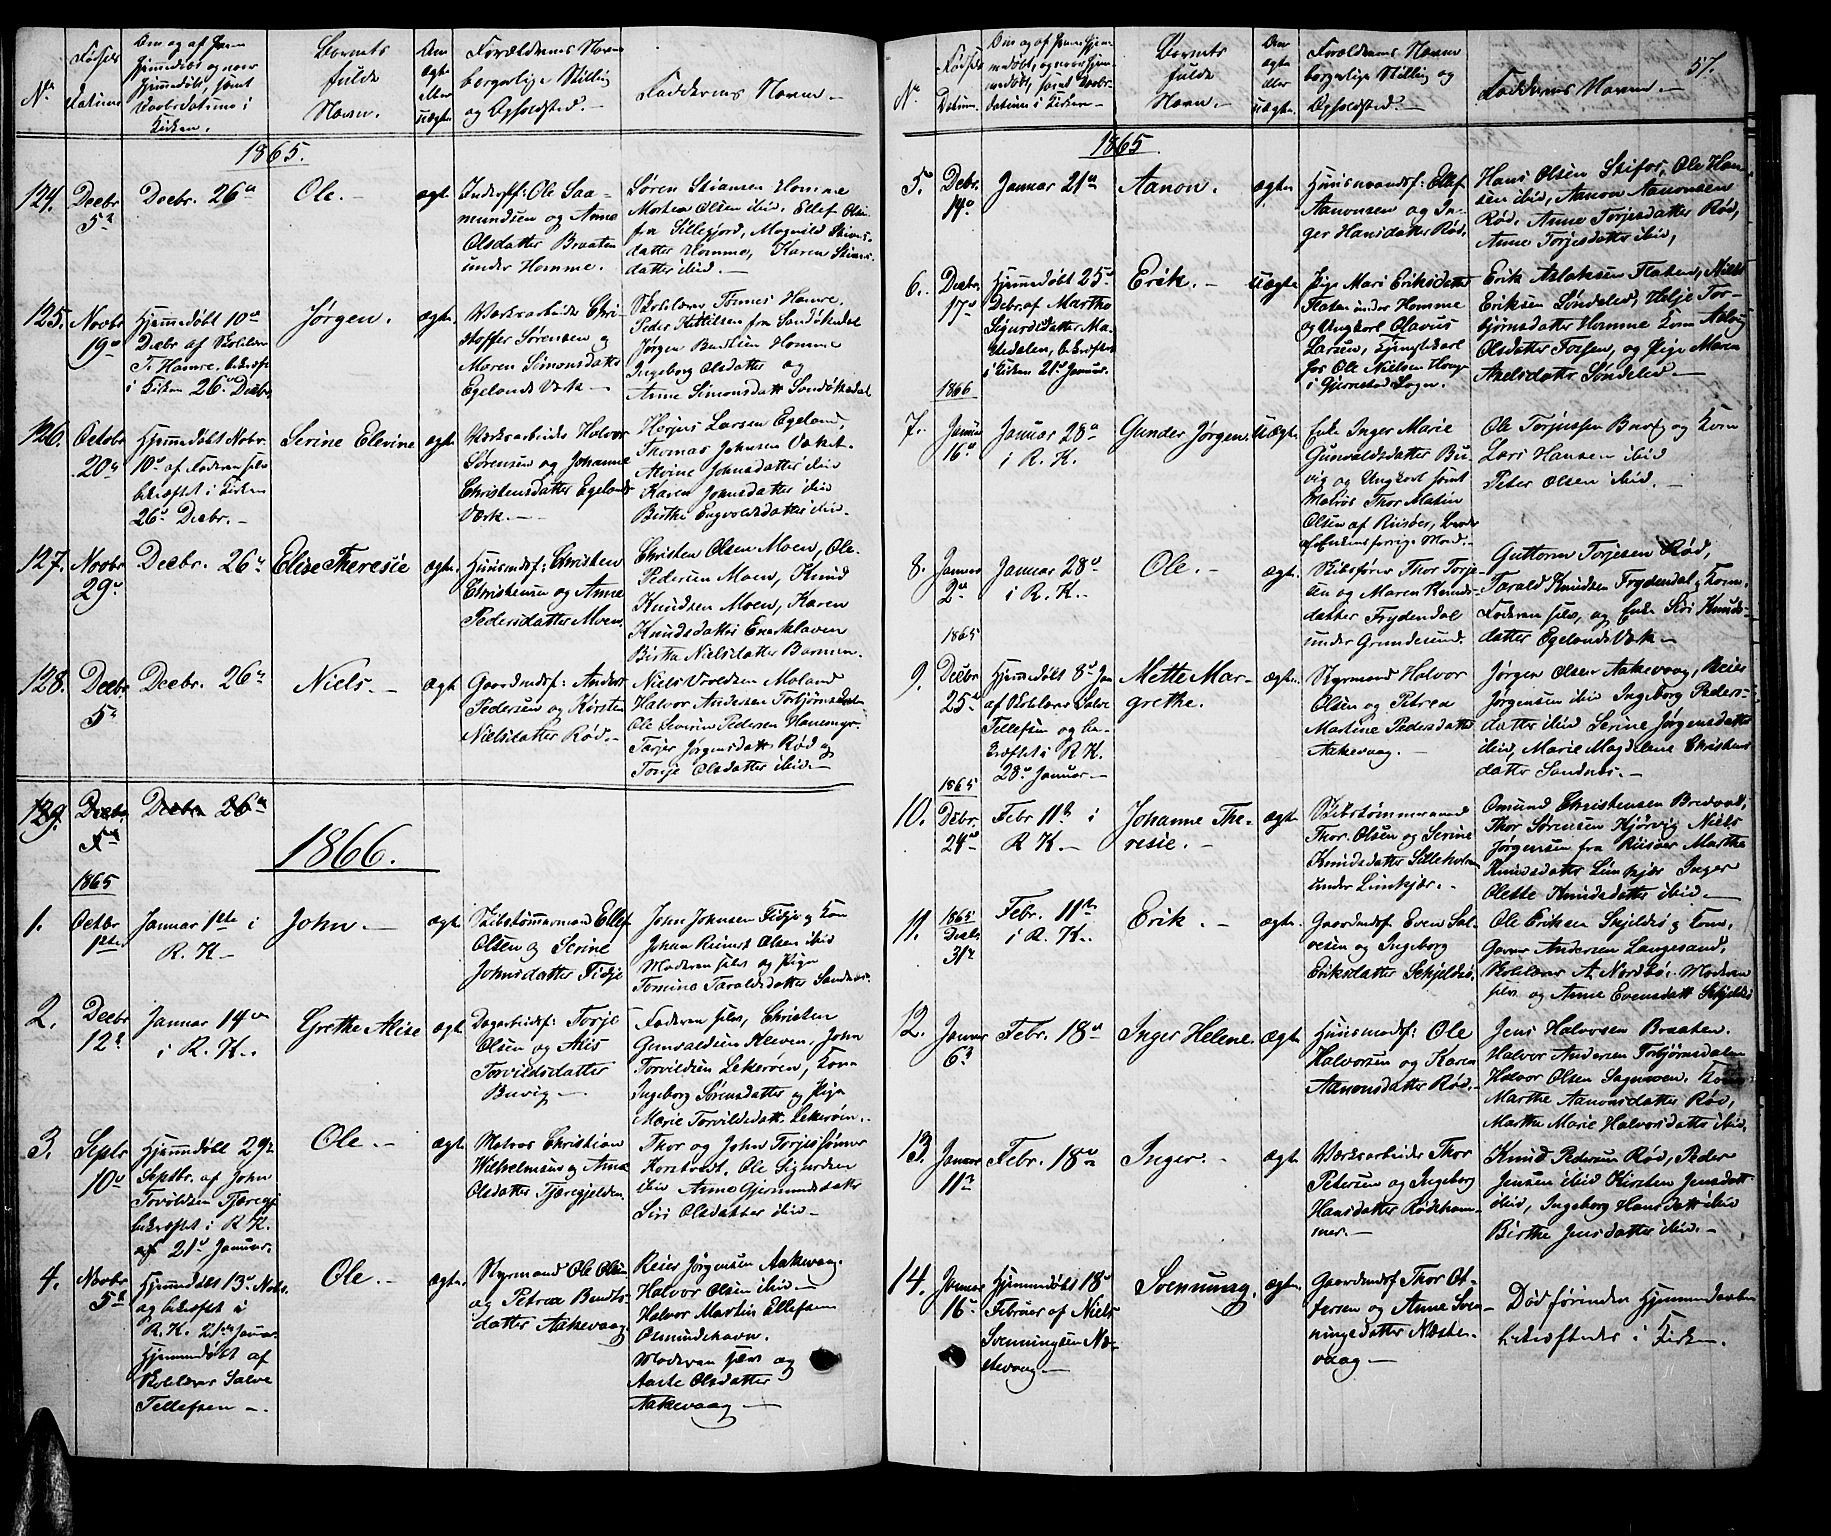 No
Fødsels
Datum
Om og af hvem
Hjemmedøbt og naar
Hjemmedøbt, samt
Daabsdatums i
Kirken.
Barnets
fulde
Navn.
Om
ægte
eller
uægte
Forældrenes Navn
borgerlige Stilling
og Opholdsted.
Faddernes Navne.
1865.
124.
Decbr
5te
Decbr. 26de
Ole.
ægte
Inderstf: Ole Saa-
mundsen og Anne
Olsdatter Braaten
under Homme.
Søren Stiansen Homme
Morten Olsen ibid, Ellef Olsen
fra Sillegjord, Magnild Stians-
datter Homme, Karen Stians-
datter ibid.
125.
Novbr
19de
Hjemmedøbt 10de
Decbr af Skolelærer
T. Hamre, bekræftet
i Kirken 26de Decbr
Jørgen.
ægte.
Værksarbeider Chri-
stoffer Sørensen og
Maren Simonsdatter
Egelands Værk
Skolelærer Tønnes Hamre.
Peder Kittilsen fra Søndøledal
Jørgen Bentsen Homme
Ingeborg Olsdatter og
Anne Simonsdatt Søndøledal
126.
Octobr
20de
Hjemmedøbt Novbr.
10de af Faderen selv
bekræftet i Kirken
26de Decbr.
Serine Elevine
ægte
Værksarbeider Halvor
Sørensen og Johanne
Christensdatter Egelands
Værk.
Larsen Egeland,
Thomas Johnsen
Alvine Johnsdatter ibid
Karen Johnsdatter ibid
Birthe Engvoldsdatter ibid.
127.
Novbr
29de
Decbr. 26de
Elise Theresie
ægte.
Huusmdsf: Christen
Christensen og Anne
Pedersdatter Moen.
Christen Olsen Moen, Ole
Pedersen Moen, Knud
Knudsen Moen, Karen
Knudsdatter Eneskleven
Birthe Nielsdatter Barmen.
128.
Decbr
5te
Decbr. 26de
Niels.
ægte
Gaardmdsf: Anders
Pedersen og Kirsten
Nielsdatter Rød.
Niels Moland
Halvor Andersen Torbjørnsdalen
Ole Severin Pedersen Hanemyr
Tarjer Jørgensdatt Rød og
Tonje Olsdatter ibid.
129.
Decbr. 26de
1866.
1865
1.
Octbr
1ste
Januar 1ste i
R. K.
John.
ægte
Skibstømmermand Ellef
Olsen og Serine
Johnsdatter Fidje
John Johnsen Fidje og Kone
Johan Reinert Olsen ibid
Moderen selv og Pige
Tomine Taraldsdatter Sandnes
2.
Decbr
12te
Januar 14de
i R. K.
Grethe Alise
ægte.
Dagarbeidsf: Torje
Olsen og Alis
Torvildsdatter
Buvig
Faderen selv, Christen
Gunvaldsen Kleven, John
Torvildsen Lekerøen, Kone
Ingeborg Sørensdatter og Pige
Marie Torvildsdatt. Lekerøen.
3.
Septr
10de
Hjemmedøbt 29de
Septbr. af John
Torvildsen
bekræftet i R. K.
21de Januar.
Ole.
ægte.
Matros Christian
Wilhelmsen og Anna
Olsdatter Tjæregjelden
Thor og John Torjussønner
Korstvedt, Ole Sigurdsen
ibid Anne Gjermundsdatter
Siri Olsdatter ibid
4.
Novbr
5te
Hjemmedøbt 13de Novbr.
og bekræftet i
R. K. 21de Januar
Hjemmedøbt af
Skolelærer Salve
Tellefsen.
Ole.
ægte.
Styrmand Ole Olsen
og Petrea Bendts-
datter Aakevaag
Reier Jørgensen Aakevaag
Halvor Olsen ibid.
Halvor Martin Ellefsen
Osmundshavn.
Moderen selv og
Aaste Olsdatter
Aakevaag
57.
No
Fødsels
Datum.
Om og af hvem Hjem-
medøbt, og naar Hjem-
medøbt, samt Daabs-
datum i Kirken
Barnets
fulde
Navn.
Om
ægte
eller
uægte
Forældrenes Navn
borgerlige Stilling og
Opholdsted.
Faddernes Navne.
1865.
5.
Debr.
14de
Januar 21de
Aanon.
ægte.
Huusmandsf: Ellef
Aanonsen og In-
ger Hansdatter Rød.
Hans Olsen Stifos, Ole Han-
sen ibid, Aanon Aanonsen
Rød. Anne Torjesdatter Rød,
Anne Torjesdatter ibid,
6.
Decbr.
17de
Hjemmedøbt 25de
Debr. af Martha
Sigurdsdatter Mo-
gedalen, bekræftet
i Kirken 21de Januar.
Erik.
Uægte.
Pige Mari Eriksdatter
Flaten under Homme
og Ungkarl Olavus
Larsen, Tjenstkarl
hos Ole Nielsen Houge
i Gjerrestad Sogn.
Erik Aslaksen Flaten, Niels
Eriksen Søndeled, Helje Tor-
bjørnsdatter Homme Kone Aslaug
Olsdatter Fossen, og Pige Maren
Axelsdatter Søndeled
1866
7.
Januar
16de
Januar 28de
i R. K.
Gunder Jørgen.
Uægte.
Enke Inger Marie
Gunvaldsdatter Bu-
vig og Ungkarl samt
Matros Thor Matin
Olsen af Riisøer, Broder
af Enkens forrige Mand.
Ole Torjussen Buvig og Kone
Lars Hansen ibid
Peter Olsen ibid.
8.
Januar
2de
Januar 28de
i R. K.
Ole.
ægte.
Skibsfører Thor Torje-
sen og Maren Knuds-
datter Frydendal
under Grundesund.
Guttorm Torjesen Rød,
Tarald Knudsen Frydendal & Kone.
Faderen selv, og Enke Siri Knuds-
datter Egelands Værk
1865
9.
Decbr
25de
Hjemmedøbt 8de Jan
af Skolelærer Salve
Tellefsen og be-
kræftet i R. K.
28de Januar.
Mette Mar-
grethe.
ægte.
Styrmand Halvor
Olsen og Petrea
Martine Pedersdatter
Aakevaag.
Jørgen Olsen Aakevaag, Reier
Jørgensen ibid Ingeborg Peders-
datter ibid Serine Jørgensdatter
ibid, Marie Magdalene Christens-
datter Sandnes.
1865
10.
Debr.
24de
Febr 11te i
R. K.
Johanne The-
resie.
ægte.
Skibstømmermand
Thor Olsen og Serine
Knudsdatter Silleholmen
under Lunkjær.
Omund Christensen Bredval,
Thor Sørensen Kjørvig Niels
Jørgensen fra Riisøer Marthe
Knudsdatter Lunkjær Inger
Olette Knudsdatter ibid.
11.
1865
Decbr
31te
Febr. 11te
i R. K.
Erik.
ægte.
Gaardmdsf. Even Sal-
vesen og Ingeborg
Eriksdatter Skjeldsø.
Ole Eriksen Skjeldsø & Kone,
Andersen Langesand,
Skolelærer A. Nordbø. Moderen
selv og Anne Evensdatt Skjeldsø
12.
Januar
6te
Febr. 18de
Inger Helene.
ægte.
Huusmdsf: Ole
Halvorsen og Karen
Aanonsdatter Rød.
Jens Halvorsen Braaten.
Halvor Andersen Torbjørnsdalen
Halvor Olsen Sagmoen. Kone
Marthe Aanonsdatter Rød,
Marthe Marie Halvorsdatter ibid.
13.
Januar
11te
Febr. 18de
Inger.
ægte.
Værksarbeider Thor
Petersen og Ingeborg
Hansdatter Rødeham-
mer.
Knud Pedersen Rød, Peder
Jensen ibid Kirsten Jensdatt
ibid, Ingeborg Hansdatt ibid
Birthe Jensdatter ibid.
14.
Januar
16
Hjemmedøbt 18de
Februar af Niels
Svenningsen Næ-
stevaag
Svennung.
ægte.
Gaardmdsf Thor Ot-
tersen og Anne Sven-
ningsdatter Næste-
vaag
Død førinden Hjemmedaaben
bekræftedes i Kirken.